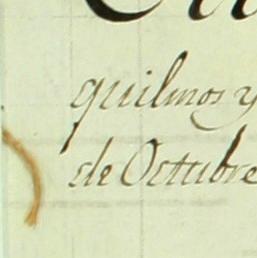 quilmos y
de Octubre